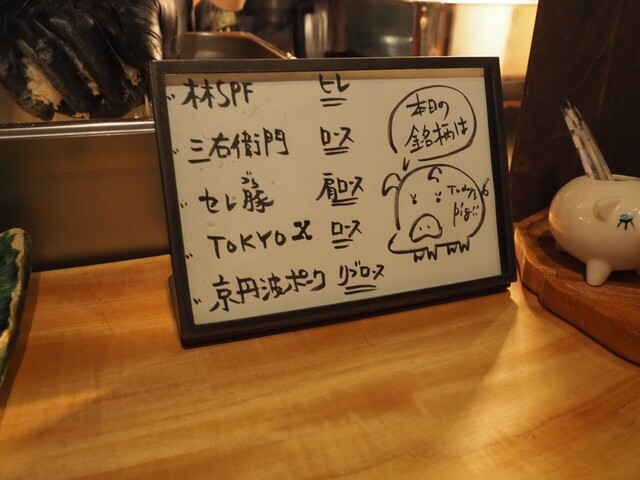 林SPF ヒレ
三右衛門 ロース
セレ豚 肩ロース
TOKYO X ロース
京丹波ポーク リブロース
本日の
銘柄は
Today's
pig!!